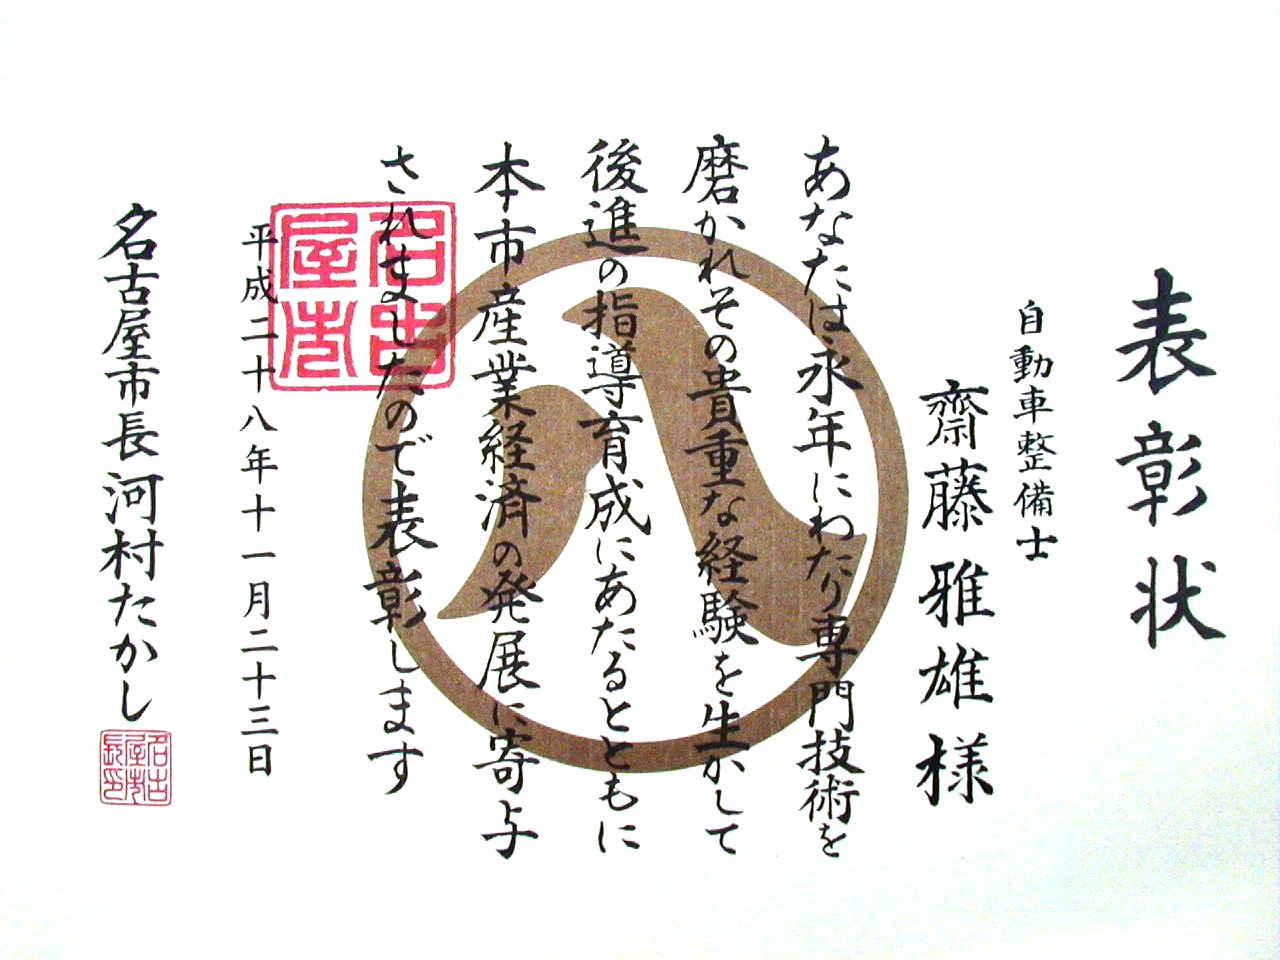 表彰状
自動車整備士
齋藤雅雄様
あなたは永年にわたり専門技術を
磨かれその貴重な経験を生かして
後進の指導育成にあたるとともに
本市産業経済の発展に寄与
されましたので表彰します
平成二十八年十一月二十三日
名古屋市長河村たかし
名古屋市
名古屋市長印
八